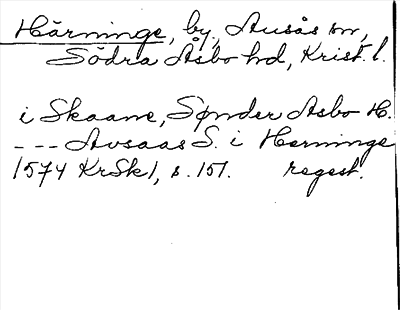 Härninge, by, Ausås sn,
Södra Åsbo hd, Krist. l.
i Skaane, Sønder Asbo H.
--- Avsaas S. i Herninge
1574 KrSk 1, s. 151. regest.